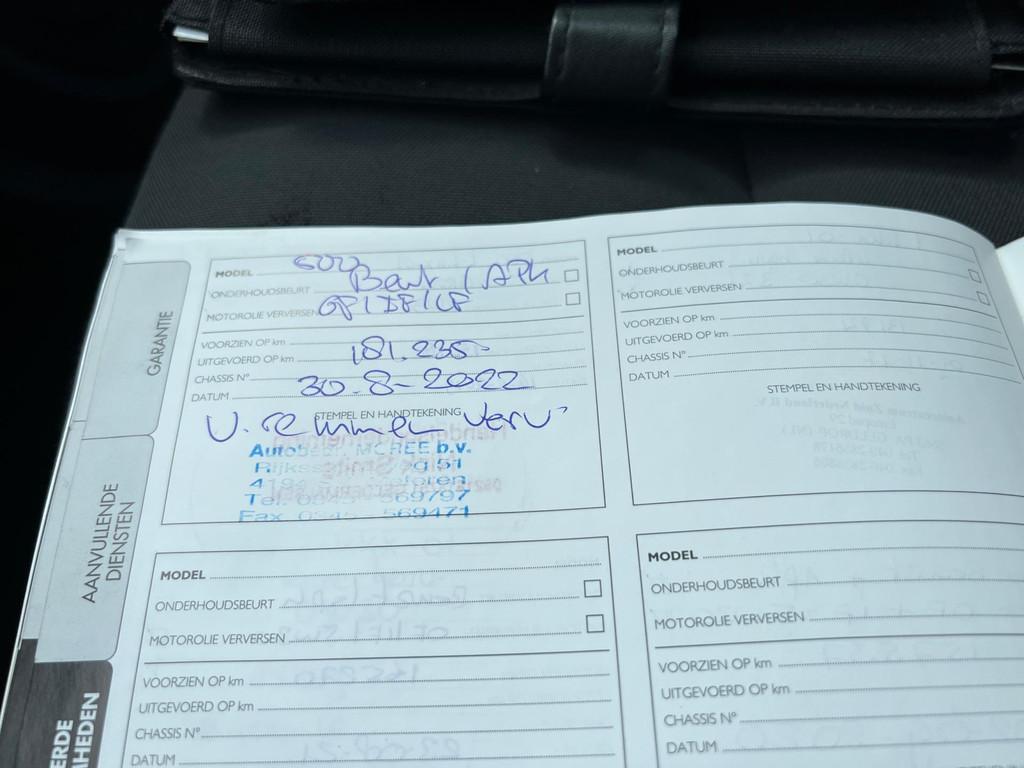 GARANTIE
AANVULLENDE
DIENSTEN
ERDE
HEDEN
MODEL 500
ONDERHOUDSBEURT Beurt / APK
MOTOROLIE VERVERSEN
VOORZIEN OP km
UITGEVOERD OP km 181.235-
CHASSIS Nº
DATUM 30-8-2022
STEMPEL EN HANDTEKENING
V. remmen verv
MCREE b.v.
Tel. 569797
Fax. 0345 - 569471
MODEL
ONDERHOUDSBEURT
MOTOROLIE VERVERSEN
VOORZIEN OP km
UITGEVOERD OP km
CHASSIS Nº
DATUM
STEMPEL EN HANDTEKENING
MODEL
ONDERHOUDSBEURT
MOTOROLIE VERVERSEN
VOORZIEN OP km
UITGEVOERD OP km
CHASSIS Nº
DATUM
MODEL
ONDERHOUDSBEURT
MOTOROLIE VERVERSEN
VOORZIEN OP km
UITGEVOERD OP km
CHASSIS Nº
DATUM